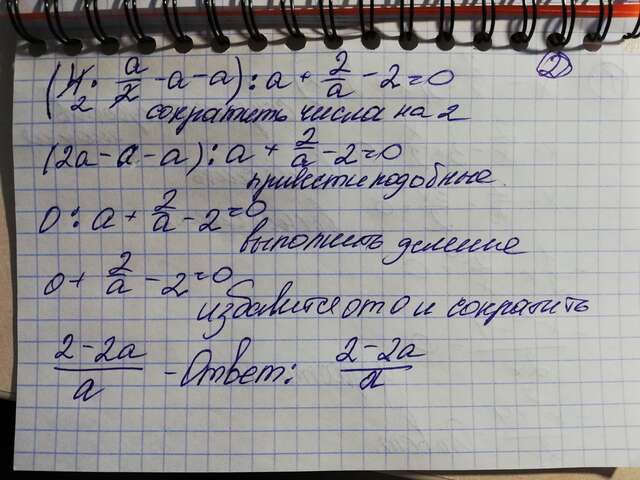 ②
(4 · a/2 - a - a) : a + 2/a - 2 = 0
2
сократить числа на 2
(2a - a - a) : a + 2/a - 2 = 0
привести подобные.
0 : a + 2/a - 2 = 0
выполнить деление
0 + 2/a - 2 = 0
избавится от 0 и сократить
(2 - 2a)/a - Ответ: (2 - 2a)/a